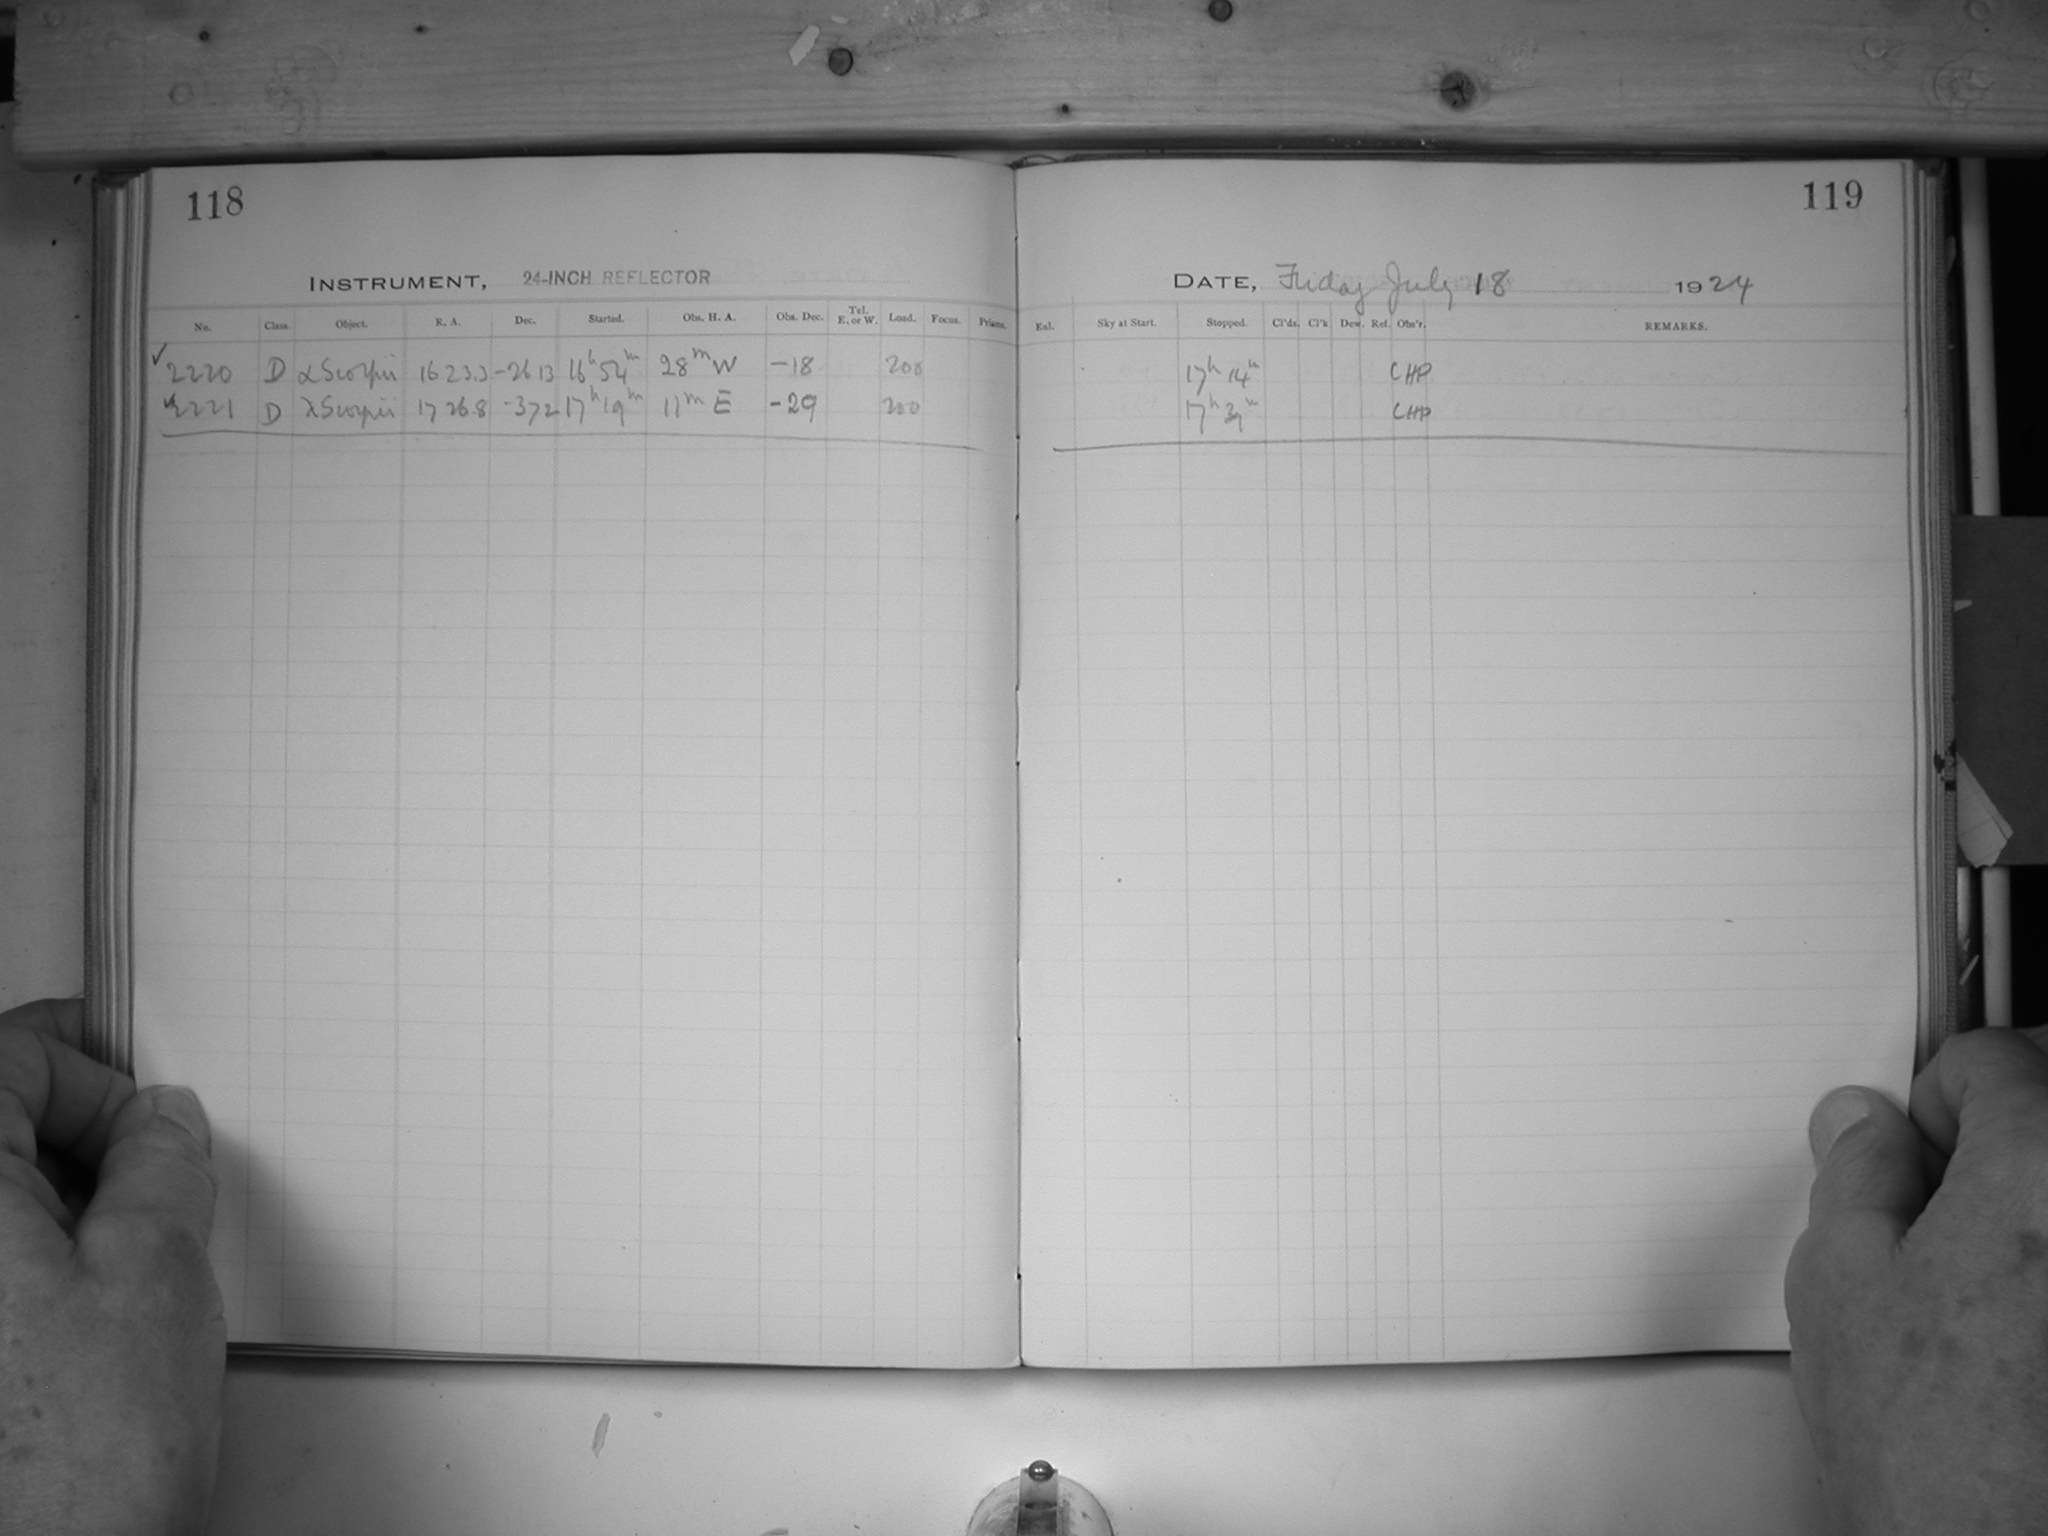 118
INSTRUMENT, 24-INCH REFLECTOR
No. Class. Object. R. A. Dec. Started. Obs. H. A. Obs. Dec. Tel. E. or W. Load. Focus. Prisms.
✓2220 D α Scorpii 16 23.3 -26 13 16h 54m 28m W -18 200
✓2221 D λ Scorpii 17 26.8 -37 2 17h 19m 11m E -29 200
119
DATE, Friday July 18 1924
Eal. Sky at Start. Stopped. Cl'ds. Cl'k Dew. Ref. Obs'r. REMARKS.
17h 14m CHP
17h 39m CHP